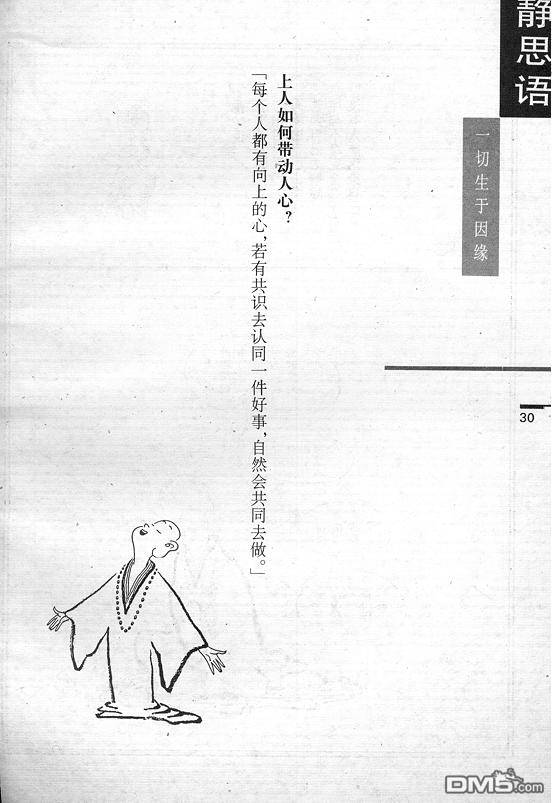 静思语
一切生于因缘
上人如何带动人心？
「每个人都有向上的心，若有共识去认同一件好事，自然会共同去做。」
30
DM5.com